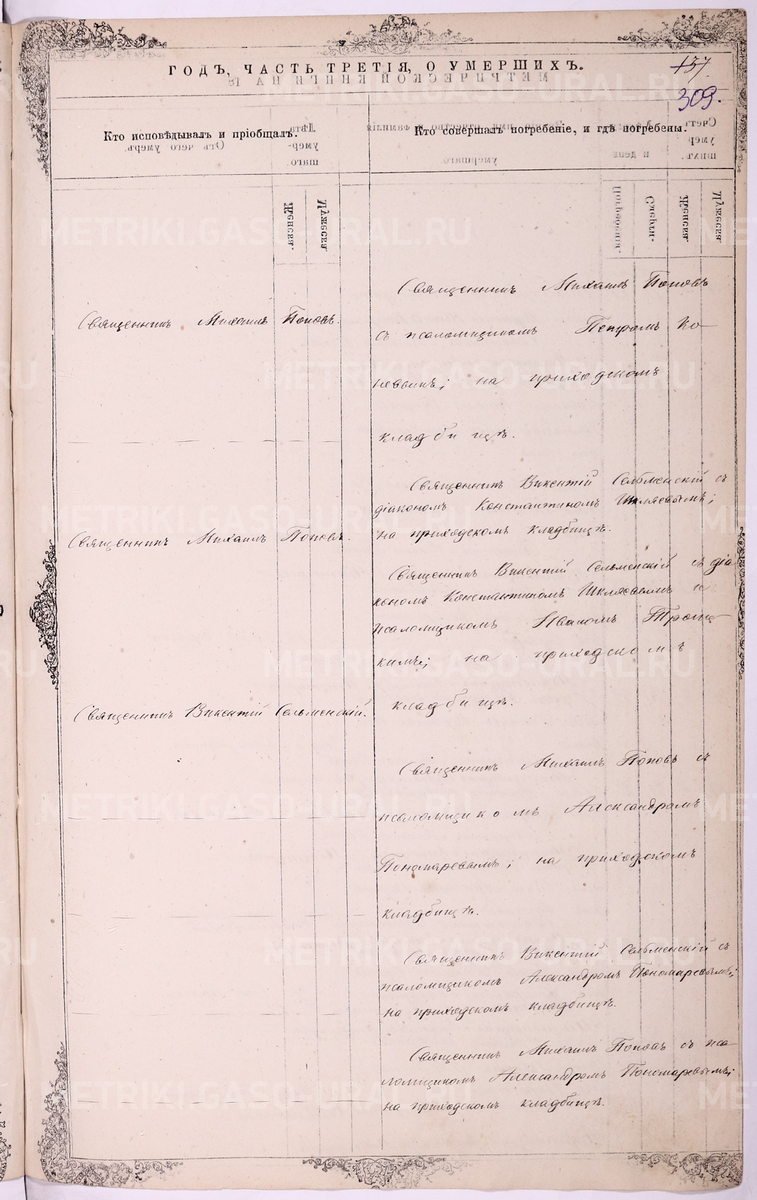 ГОДЪ, ЧАСТЬ ТРЕТІЯ, О УМЕРШИХЪ.
137.
309.
Кто исповѣдывалъ и пріобщалъ.
Кто совершалъ погребеніе, и гдѣ погребены.
Священникъ Михаилъ Поповъ.
Священникъ Михаилъ Поповъ
съ псаломщикомъ Петромъ
на приходскомъ
кладбищѣ.
Священникъ Михаилъ Поповъ.
Священникъ Викентій Сельменскій съ
діакономъ Константиномъ Шкляевымъ;
на приходскомъ кладбищѣ.
Священникъ Викентій Сельменскій.
Священникъ Викентій Сельменскій съ діа-
кономъ Константиномъ Шкляевымъ и
псаломщикомъ Иваномъ Троиц-
кимъ; на приходскомъ
кладбищѣ.
Священникъ Михаилъ Поповъ съ
псаломщикомъ Александромъ
Пономаревымъ; на приходскомъ
кладбищѣ.
Священникъ Викентій Сельменскій съ
псаломщикомъ Александромъ Пономаревымъ;
на приходскомъ кладбищѣ.
Священникъ Михаилъ Поповъ съ пса-
ломщикомъ Александромъ Пономаревымъ;
на приходскомъ кладбищѣ.
METRIKI.GASO-URAL.RU